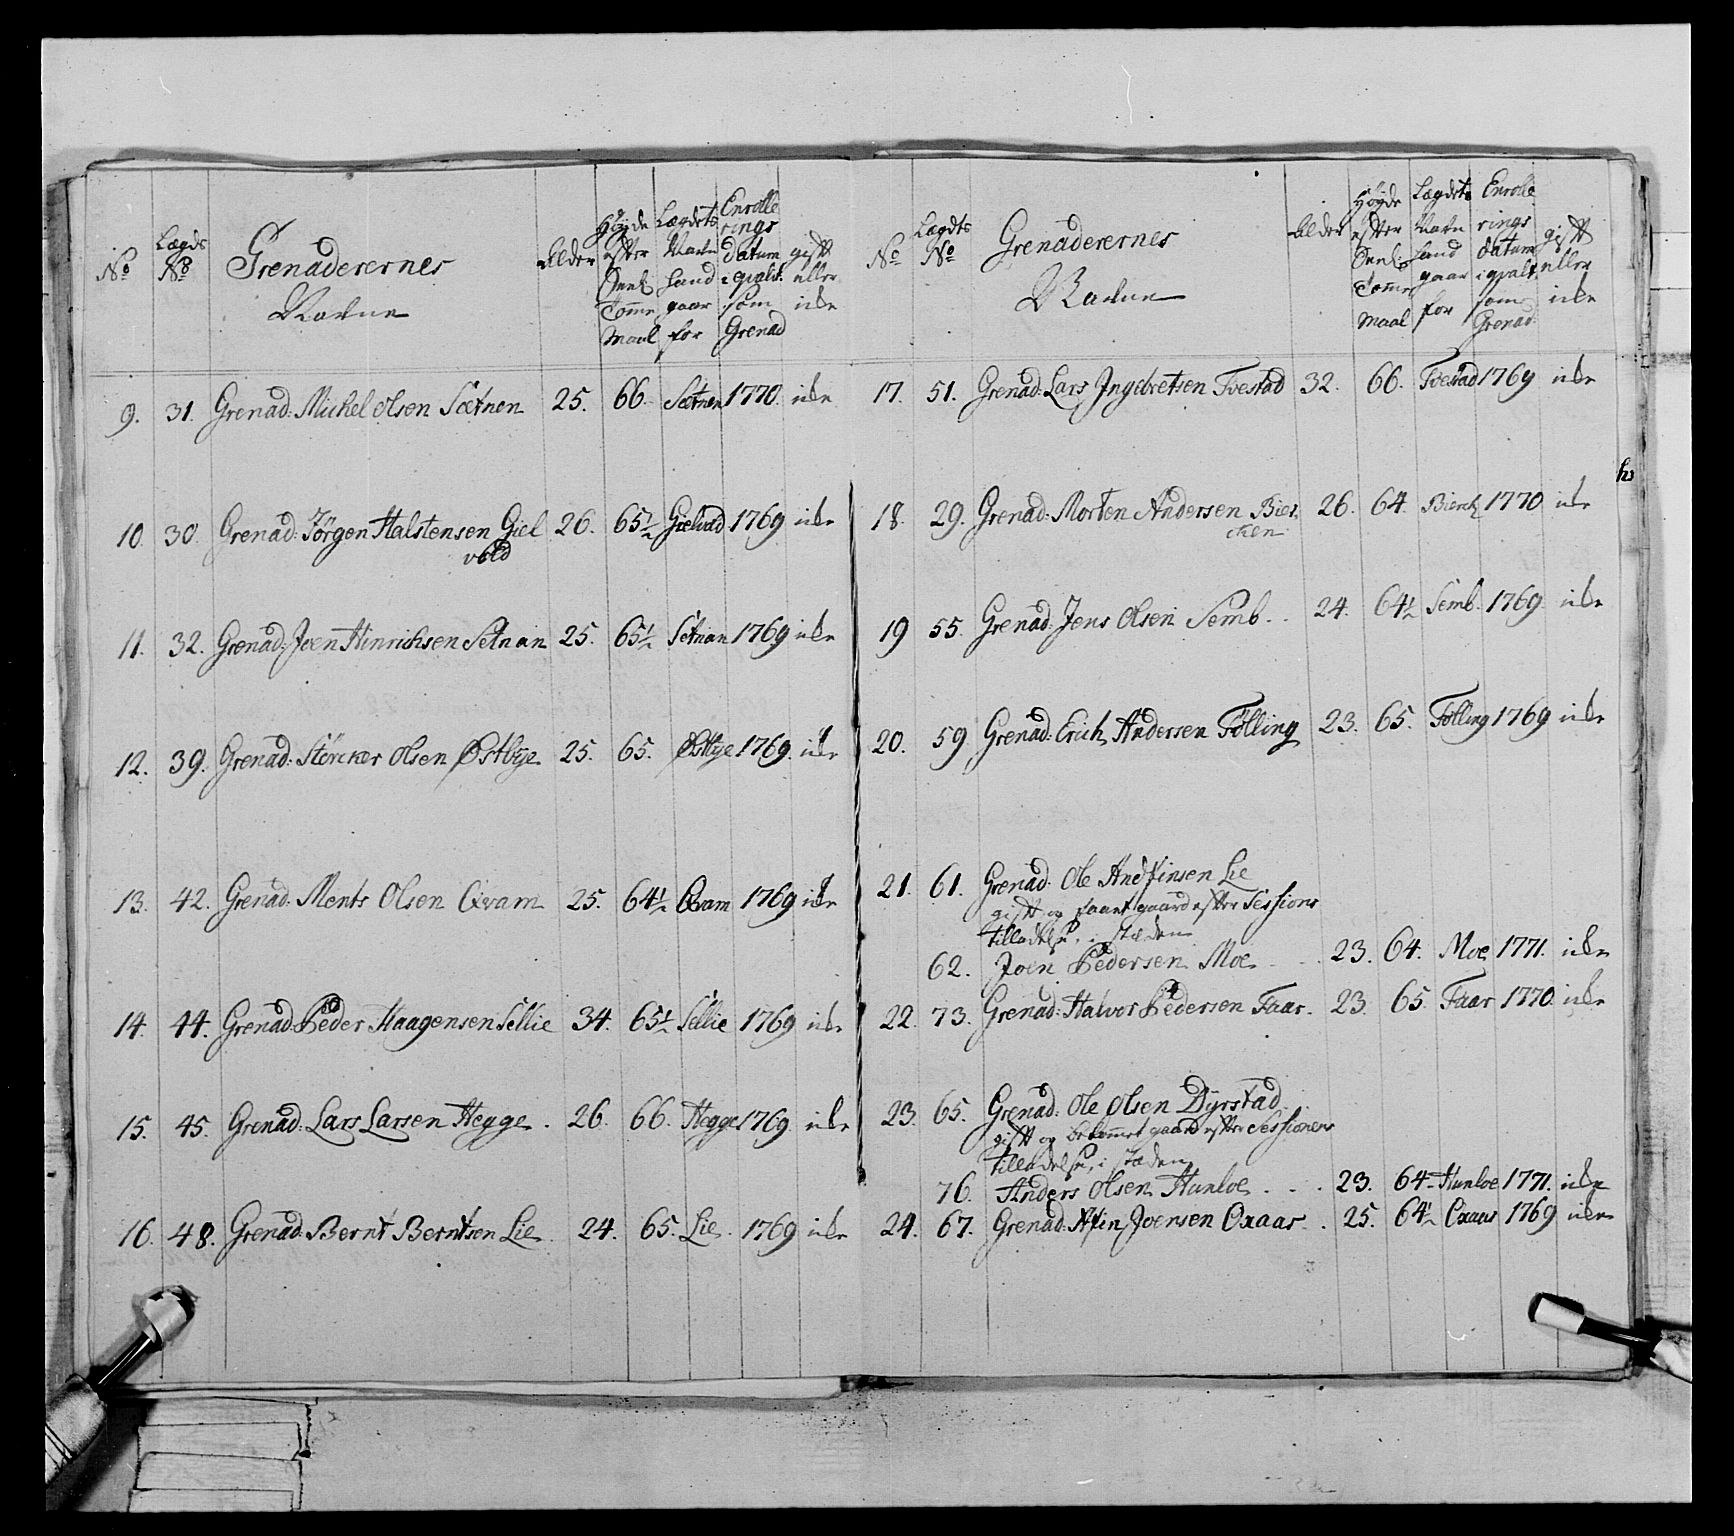 No Lægds No Grenaderernes Navne Alder Høyde efter Seel. Tomme Maal Lægdets Navn hand gaar for Enrollerings datum i qvalt. som Grenad gift eller icke
9. 31. Grenad: Michel Olsen Sætnen 25. 66. Sætnen 1770. icke
10. 30. Grenad: Jörgen Halstensen Giel 26. 65½ Gielvold 1769 icke
vold
11. 32. Grenad: Joen Hinrichsen Setnan 25. 65½ Setnan 1769 icke
12. 39. Grenad: Störcker Olsen Østbye 25. 65. Østbye 1769. icke
13. 42. Grenad: Ments Olsen Qvam 25. 64½ Qvam 1769 icke
14. 44. Grenad: Peder Haagensen Sellie 34. 65½ Sellie 1769 icke
15. 45. Grenad: Lars Larsen Hegge. 26. 66. Hegge 1769 icke
16. 48. Grenad: Bernt Berntsen Lie. 24. 65. Lie. 1769 icke
No Lægdts No Grenaderernes Navne Alder Høyde efter Seel. Tomme Maal Lægdets Navn hand gaar for Enrollerings datum i qvalt. som Grenad gift eller icke
17. 51. Grenad: Lars Ingebretsen Tvestad 32. 66. Tvestad 1769 icke
18. 29. Grenad: Morten Andersen Bier 26. 64. Bierch 1770 icke
chen
19 55. Grenad: Jens Olsen Semb.. 24. 64½ Semb. 1769. icke
20. 59. Grenad: Erich Andersen Fölling 23. 65. Fölling 1769 icke
21. 61. Grenad: Ole Andfinsen Lie
gift og faaet gaard efter Sessions
tilladelse, i stæden
62. Joen Pedersen Moe 23. 64. Moe 1771. icke
22. 73. Grenad: Halvor Pedersen Faar. 23. 65. Faar 1770. icke
23. 65. Grenad: Ole Olsen Dyrstad
gift og bekommet gaard efter Sessionens
tilladelse, i stæden
76. Anders Olsen Hunloe 23. 64. Hunloe 1771. icke
24. 67. Grenad: Afin Joensen Oxaas.. 25. 64½ Oxaas 1769 icke